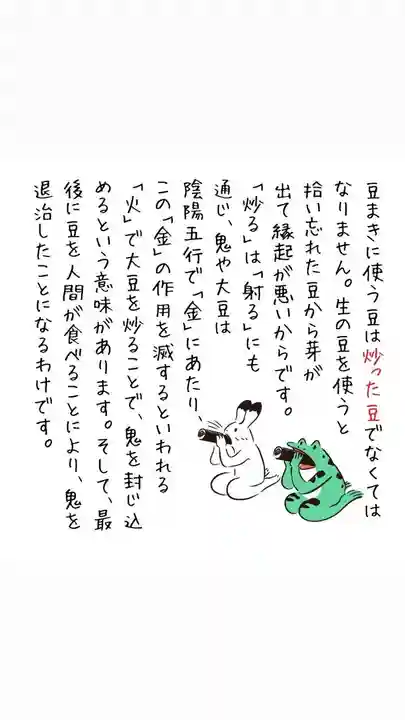 豆まきに使う豆は炒った豆でなくては
なりません。生の豆を使うと
拾い忘れた豆から芽が
出て縁起が悪いからです。
「炒る」は「射る」にも
通じ、鬼や大豆は
陰陽五行で「金」にあたり、
この「金」の作用を滅するといわれる
「火」で大豆を炒ることで、鬼を封じ込
めるという意味があります。そして、最
後に豆を人間が食べることにより、鬼を
退治したことになるわけです。